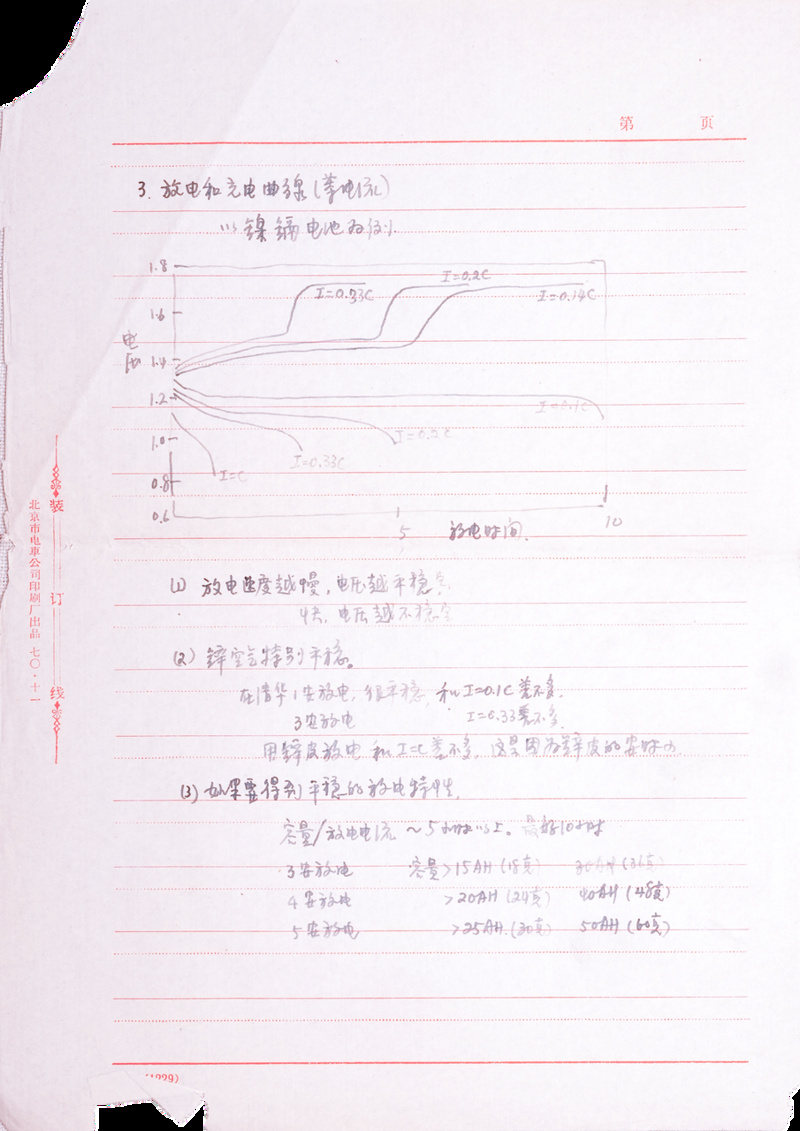 第 页
3. 放电和充电曲线(等电流)
以镍镉电池为例.
1.8
1.6
1.4
1.2
1.0
0.8
0.6
电压
I=0.33C
I=0.2C
I=0.14C
I=0.1C
I=0.2C
I=0.33C
I=C
5
10
放电时间.
(1) 放电速度越慢,电压越平稳
快,电压越不稳定
(2) 锌空气特别平稳。
在清华1安放电,很平稳,和I=0.1C差不多.
3安放电 I=0.33差不多.
用锌皮放电和I=C差不多,这是因为锌皮的安时小
(3) 如果要得到平稳的放电特性,
容量/放电电流 ~5小时以上。最好10小时
3安放电 容量>15AH (18克) 30AH (36克)
4安放电 >20AH (24克) 40AH (48克)
5安放电 >25AH.(30克) 50AH (60克)
装 订 线
北京市电車公司印刷厂出品 七〇·十一
(1229)